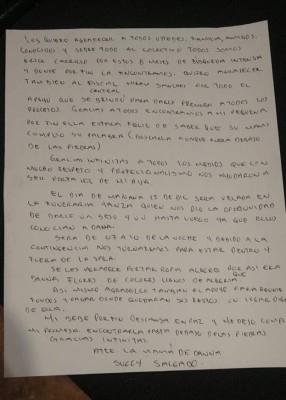 LES QUIERO AGRADECER A TODOS USTEDES, FAMILIA, AMIGOS,
CONOCIDOS Y SOBRE TODO AL COLECTIVO TODOS SOMOS
ERICK CARRILLO POR ESTOS 8 MESES DE BÚSQUEDA INTENSA
Y DONDE POR FIN LA ENCONTRAMOS. QUIERO AGRADECER
TAMBIEN AL FISCAL HIRAM SANCHEZ POR TODO EL
CENTRAL
APOYO QUE SE BRINDO PARA DARLE PREMURA A TODOS LOS
PROCESOS. GRACIAS A TODOS ENCONTRAMOS A MI PEQUEÑA
POR FIN ELLA ESTARA FELIZ DE SABER QUE SU MAMI
CUMPLIO SU PALABRA (BUSCARLA AUNQUE FUERA DEBAJO
DE LAS PIEDRAS)
GRACIAS INFINITAS A TODOS LOS MEDIOS QUE CON
MUCHO RESPETO Y PROFESIONALISMO NOS AYUDARON A
SER PORTAVOZ DE MI HIJA
EL DIA DE MAÑANA 15 DE DIC SERA VELADA EN
LA FUNERARIA GANZA QUIEN NOS DIO LA OPORTUNIDAD
DE DARLE UN BESO Y UN HASTA LUEGO YA QUE ELLOS
CONOCIAN A DANNA.
SERA DE 07 A 10 DE LA NOCHE Y DEBIDO A LA
CONTINGENCIA NOS TURNAREMOS PARA ESTAR DENTRO Y
FUERA DE LA SALA.
SE LES AGRADECE PORTAR ROPA ALEGRE POR ASI ERA
DANNA FLORES DE COLORES LLENOS DE ALEGRIA
ASI MISMO AGRADEZCO TAMBIEN EL APOYO PARA REUNIR
FONDOS Y PAGAR DONDE QUEDARAN SUS RESTOS. UN LUGAR DIGNO
DE ELLA.
MI BEBE POR FIN DESCANSA EN PAZ Y ME DEJO CUMPLIR
MI PROMESA. ENCONTRARLA HASTA DEBAJO DE LAS PIEDRAS
GRACIAS INFINITAS.
ATTE LA MAMÁ DE DANNA
SUGEY SALGADO.